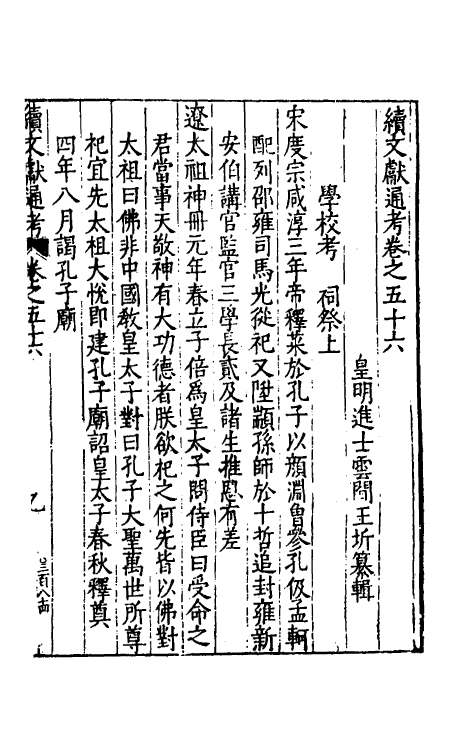 續文獻通考卷之五十六
皇明進士雲間王圻纂輯
學校考 祠祭上
宋度宗咸淳三年帝釋菜於孔子以顏淵曾參孔伋孟軻
配列邵雍司馬光從祀又陞顓孫師於十哲追封雍新
安伯講官監官三學長貳及諸生推恩有差
遼太祖神冊元年春立子倍為皇太子問侍臣曰受命之
君當事天敬神有大功德者朕欲祀之何先皆以佛對
太祖曰佛非中國教皇太子對曰孔子大聖萬世所尊
祀宜先太祖大悅即建孔子廟詔皇太子春秋釋奠
四年八月謁孔子廟
續文獻通考 卷之五十六